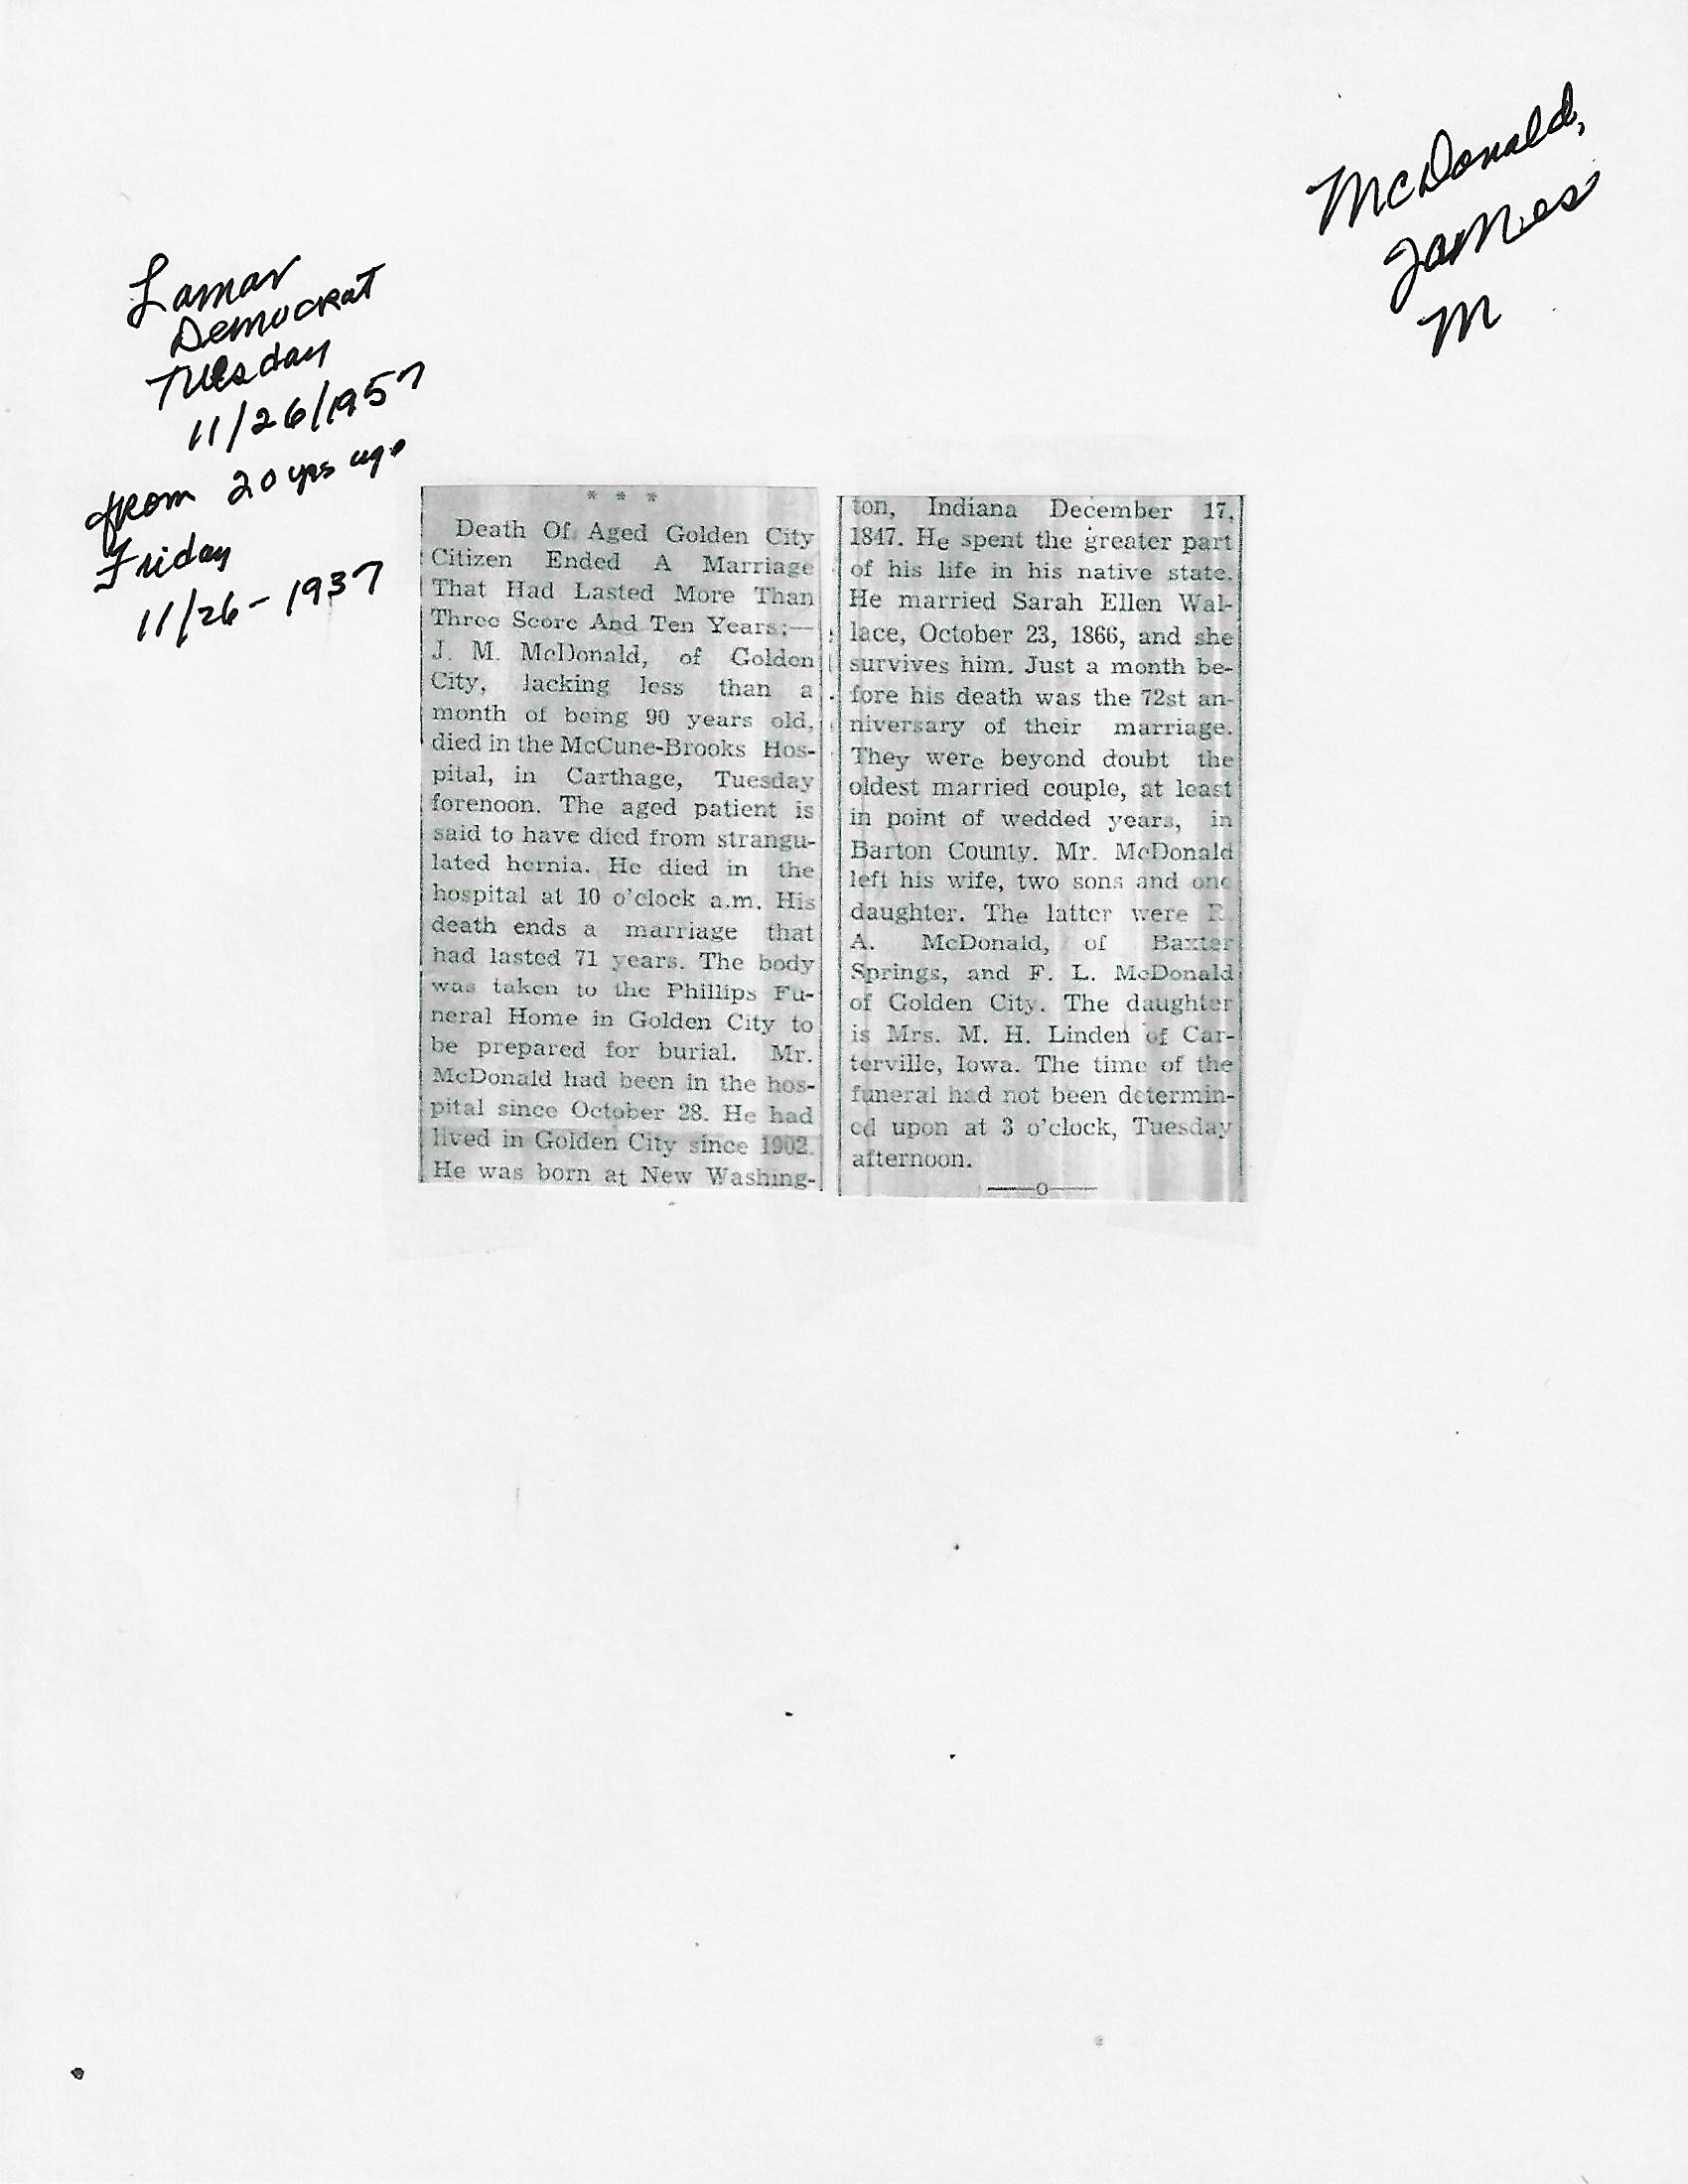 McDonald,
James
M
Lamar
Democrat
Tuesday
11/26/1957
from 20 yrs ago
Friday
11/26-1937
* * *
Death Of Aged Golden City
Citizen Ended A Marriage
That Had Lasted More Than
Three Score And Ten Years:—
J. M. McDonald, of Golden
City, lacking less than a
month of being 90 years old,
died in the McCune-Brooks Hos-
pital, in Carthage, Tuesday
forenoon. The aged patient is
said to have died from strangu-
lated hernia. He died in the
hospital at 10 o'clock a.m. His
death ends a marriage that
had lasted 71 years. The body
was taken to the Phillips Fu-
neral Home in Golden City to
be prepared for burial. Mr.
McDonald had been in the hos-
pital since October 28. He had
lived in Golden City since 1902.
He was born at New Washing-
ton, Indiana December 17,
1847. He spent the greater part
of his life in his native state.
He married Sarah Ellen Wal-
lace, October 23, 1866, and she
survives him. Just a month be-
fore his death was the 72st an-
niversary of their marriage.
They were beyond doubt the
oldest married couple, at least
in point of wedded years, in
Barton County. Mr. McDonald
left his wife, two sons and one
daughter. The latter were R.
A. McDonald, of Baxter
Springs, and F. L. McDonald
of Golden City. The daughter
is Mrs. M. H. Linden of Car-
terville, Iowa. The time of the
funeral had not been determin-
ed upon at 3 o'clock, Tuesday
afternoon.
——o——